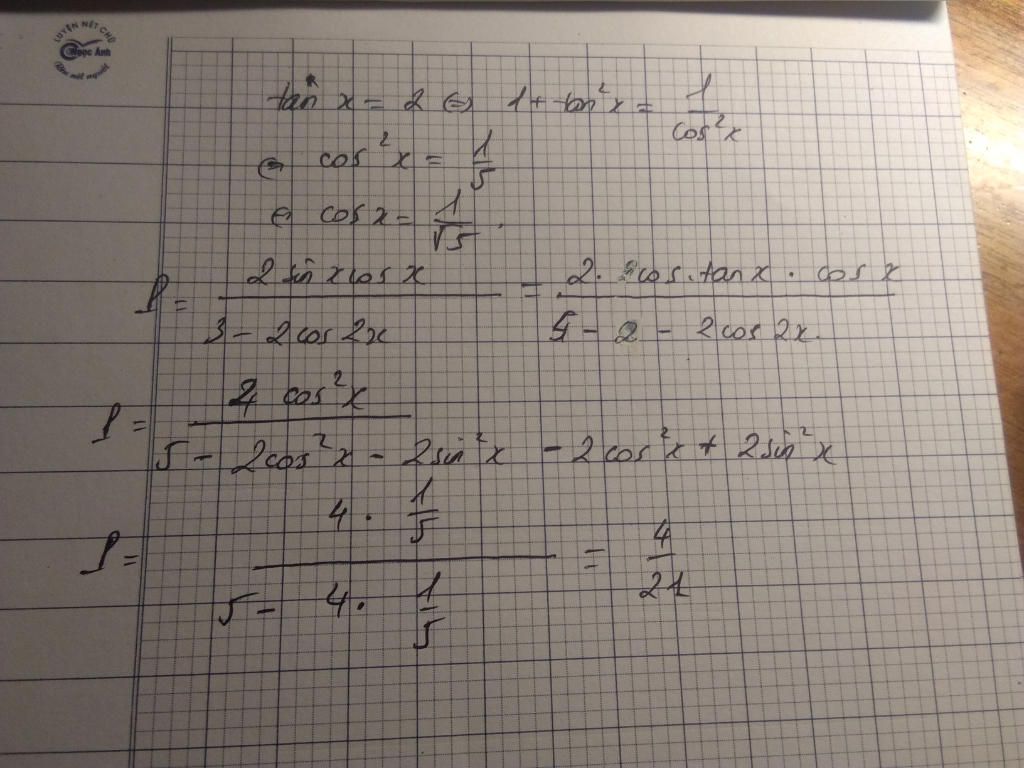 LUYỆN NÉT CHỮ
Ngọc Ánh
Rèn nết người
tan x = 2 ⇔ 1 + tan²x = 1/cos²x
⇔ cos²x = 1/5
⇔ cos x = 1/√5.
P = (2 sin x cos x)/(3 - 2cos2x) = (2. cos.tan x . cos x)/(5 - 2 - 2cos2x.)
P = (4 cos²x)/(5 - 2cos²x - 2sin²x - 2cos²x + 2sin²x)
P = (4 . 1/5)/(5 - 4. 1/5) = 4/21